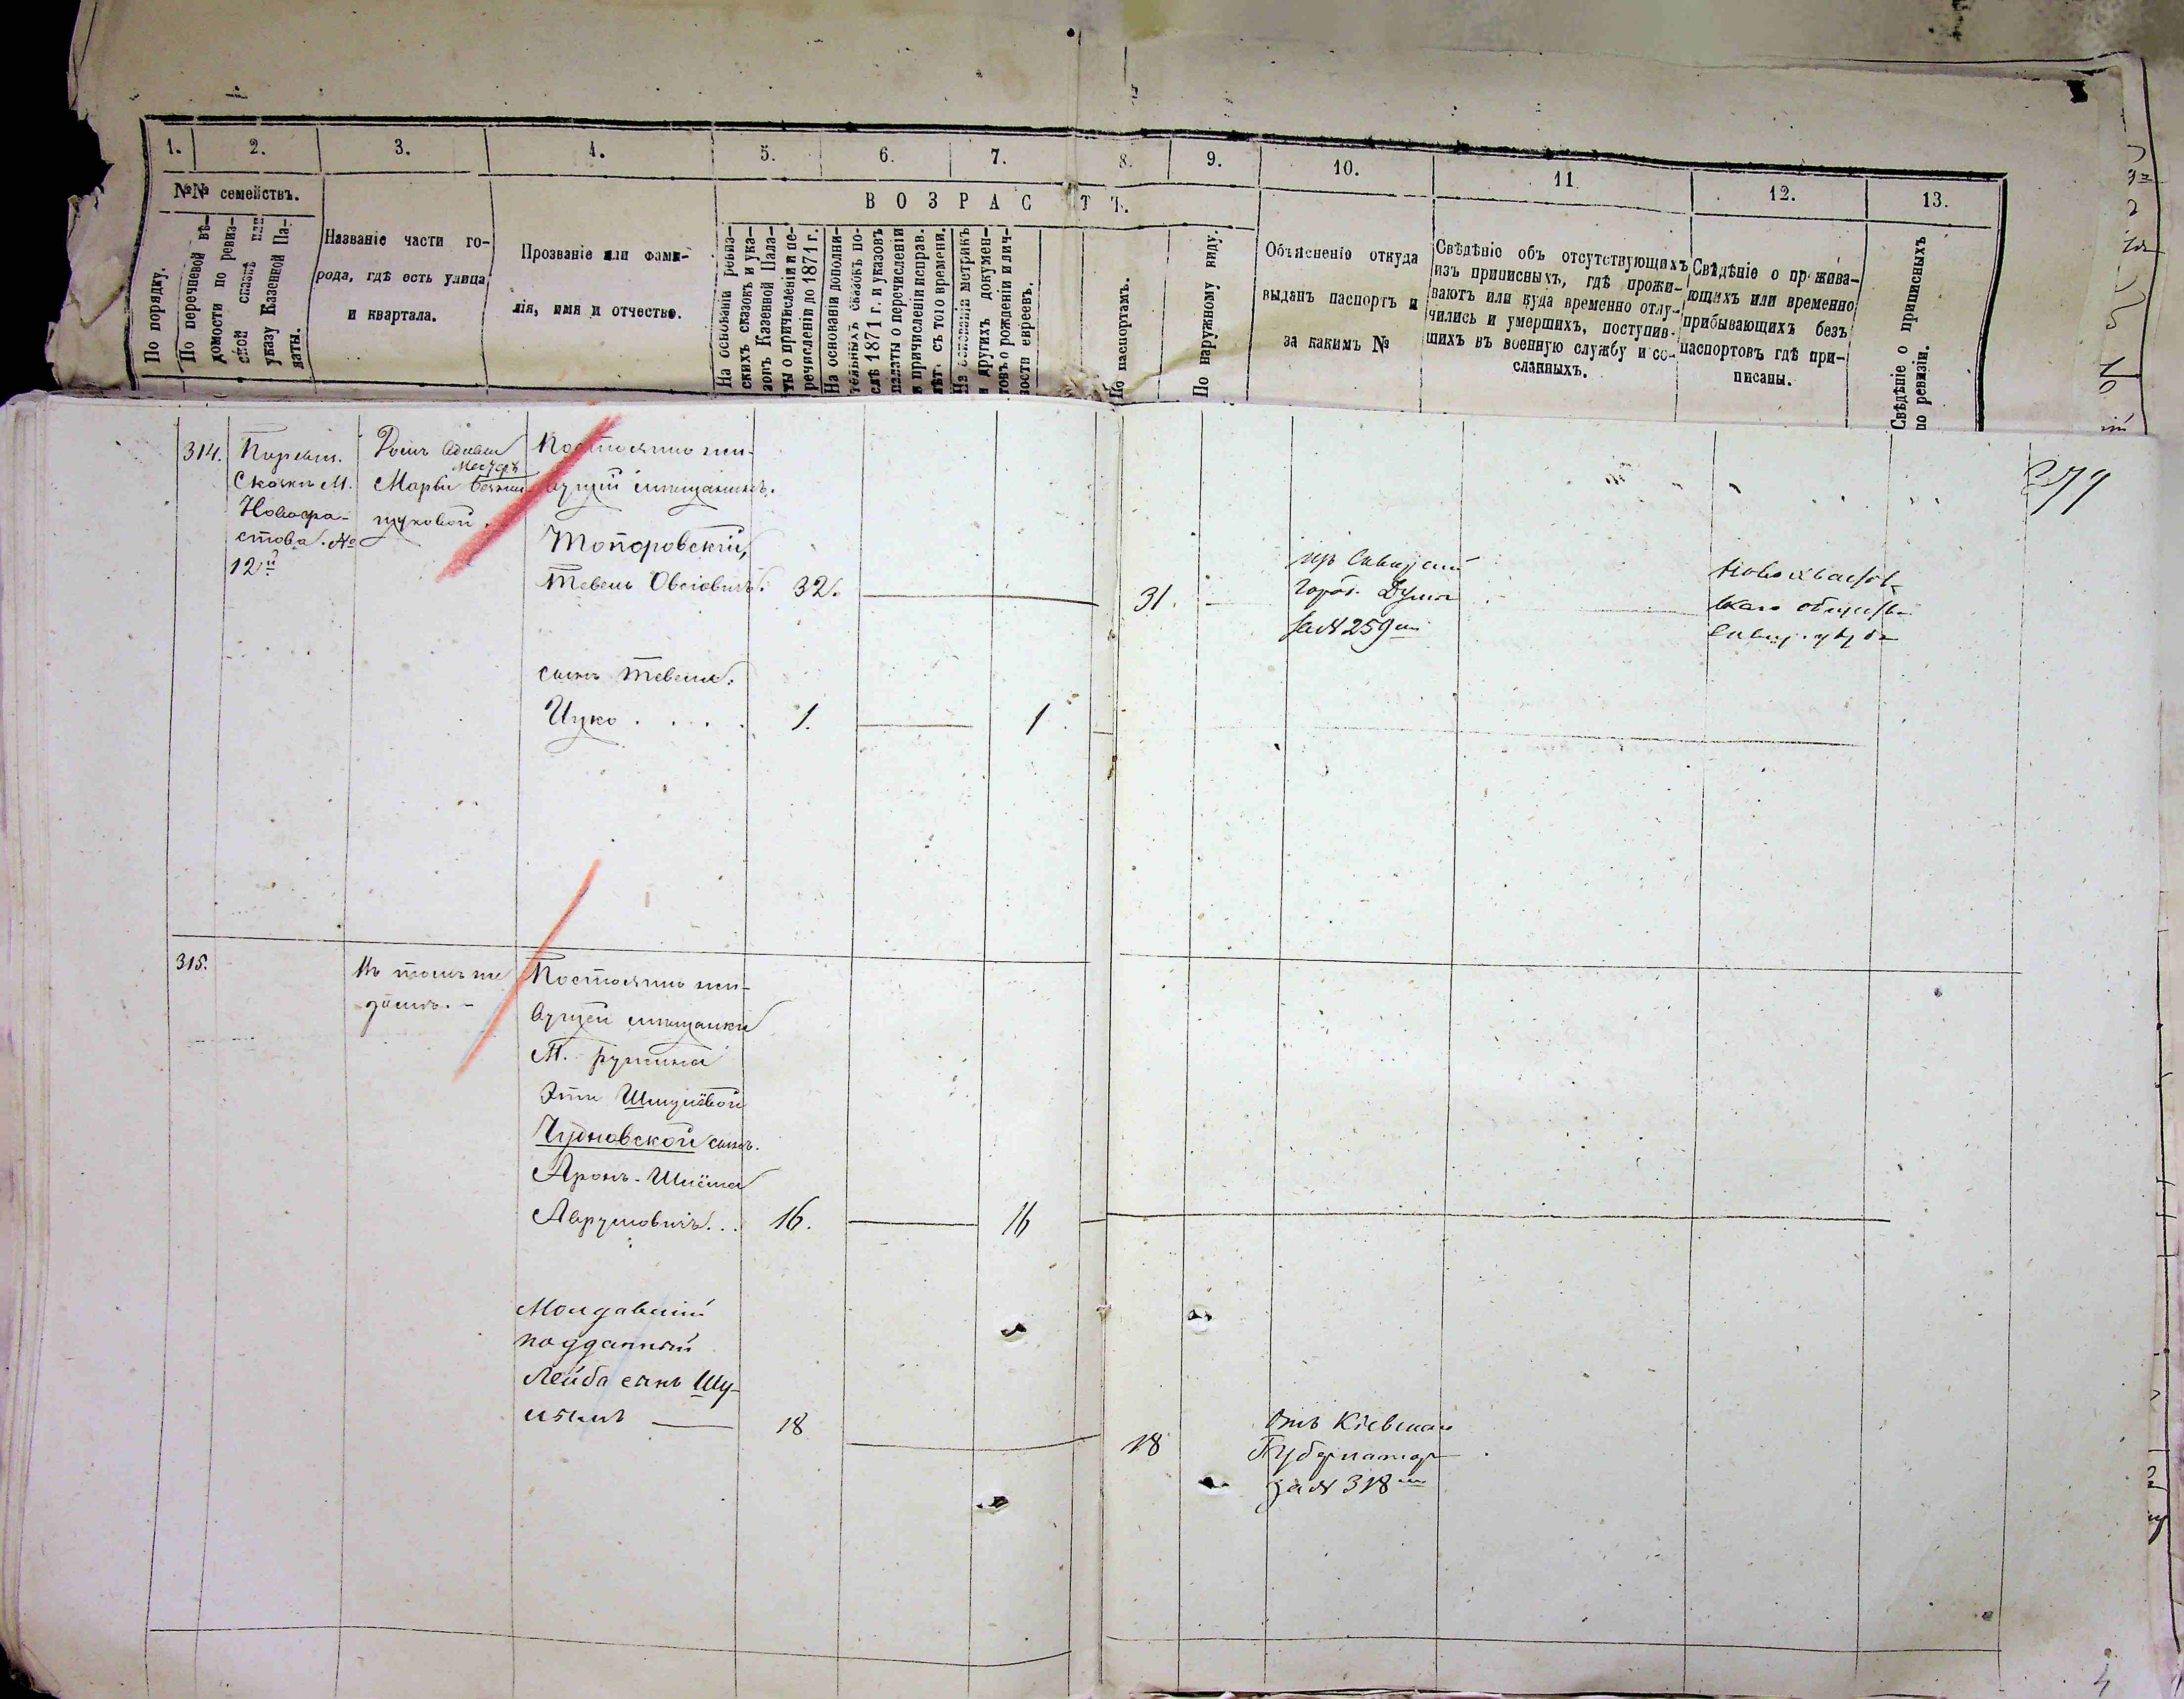 1. 2. 3. 4. 5. 6. 7. 8. 9. 10. 11. 12. 13.
№№ семействъ.
По порядку.
По перечневой вѣ-
домости по ревиз-
ской сказкѣ или
указу Казенной Па-
латы.
Названіе части го-
рода, гдѣ есть улица
и квартала.
Прозваніе или фами-
лія, имя и отчество.
ВОЗРАСТЪ.
На основаніи ревиз-
скихъ сказокъ и ука-
зовъ Казенной Пала-
ты о причисленіи и пе-
речисленіи до 1871 г.
На основаніи дополни-
тельныхъ сказокъ по-
слѣ 1871 г. и указовъ
палаты о перечисленіи
и причисленіи исправ.
лѣт. съ того времени.
На основаніи метрикъ
и другихъ докумен-
товъ о рожденіи и лич-
ности евреевъ.
По паспортамъ.
По наружному виду.
Объясненіе откуда
выданъ паспортъ и
за какимъ №
Свѣдѣніе объ отсутствующихъ
изъ приписныхъ, гдѣ прожи-
ваютъ или куда временно отлу-
чились и умершихъ, поступив-
шихъ въ военную службу и со-
сланныхъ.
Свѣдѣніе о прожива-
ющихъ или временно
прибывающихъ безъ
паспортовъ гдѣ при-
писаны.
Свѣдѣніе о приписныхъ
по ревизіи.
279
314.
Сказкѣ М.
Новофа-
стова. №
12й
Домъ
Марьи
Постоянно жи-
вущій мѣщанинъ.
Топоровскій,
Тевель Овсіовичъ. 32. 31.
изъ Сквирской
Город. Думы
за № 259
Новофастов-
скаго общества
Сквир. уѣзда
сынъ Тевеля:
Ицко . . . . 1. 1
315.
Въ томъ же
домѣ. -
Постоянно жи-
вущей мѣщанки
М. Ружина
Эти Шмулёвой
Чудновской сынъ.
Аронъ-Шлёма
Аврумовичъ... 16. 16
Молдавскій
подданный
Лейба сынъ 18 18
Отъ Кіевскаго
Губернатор
за № 318